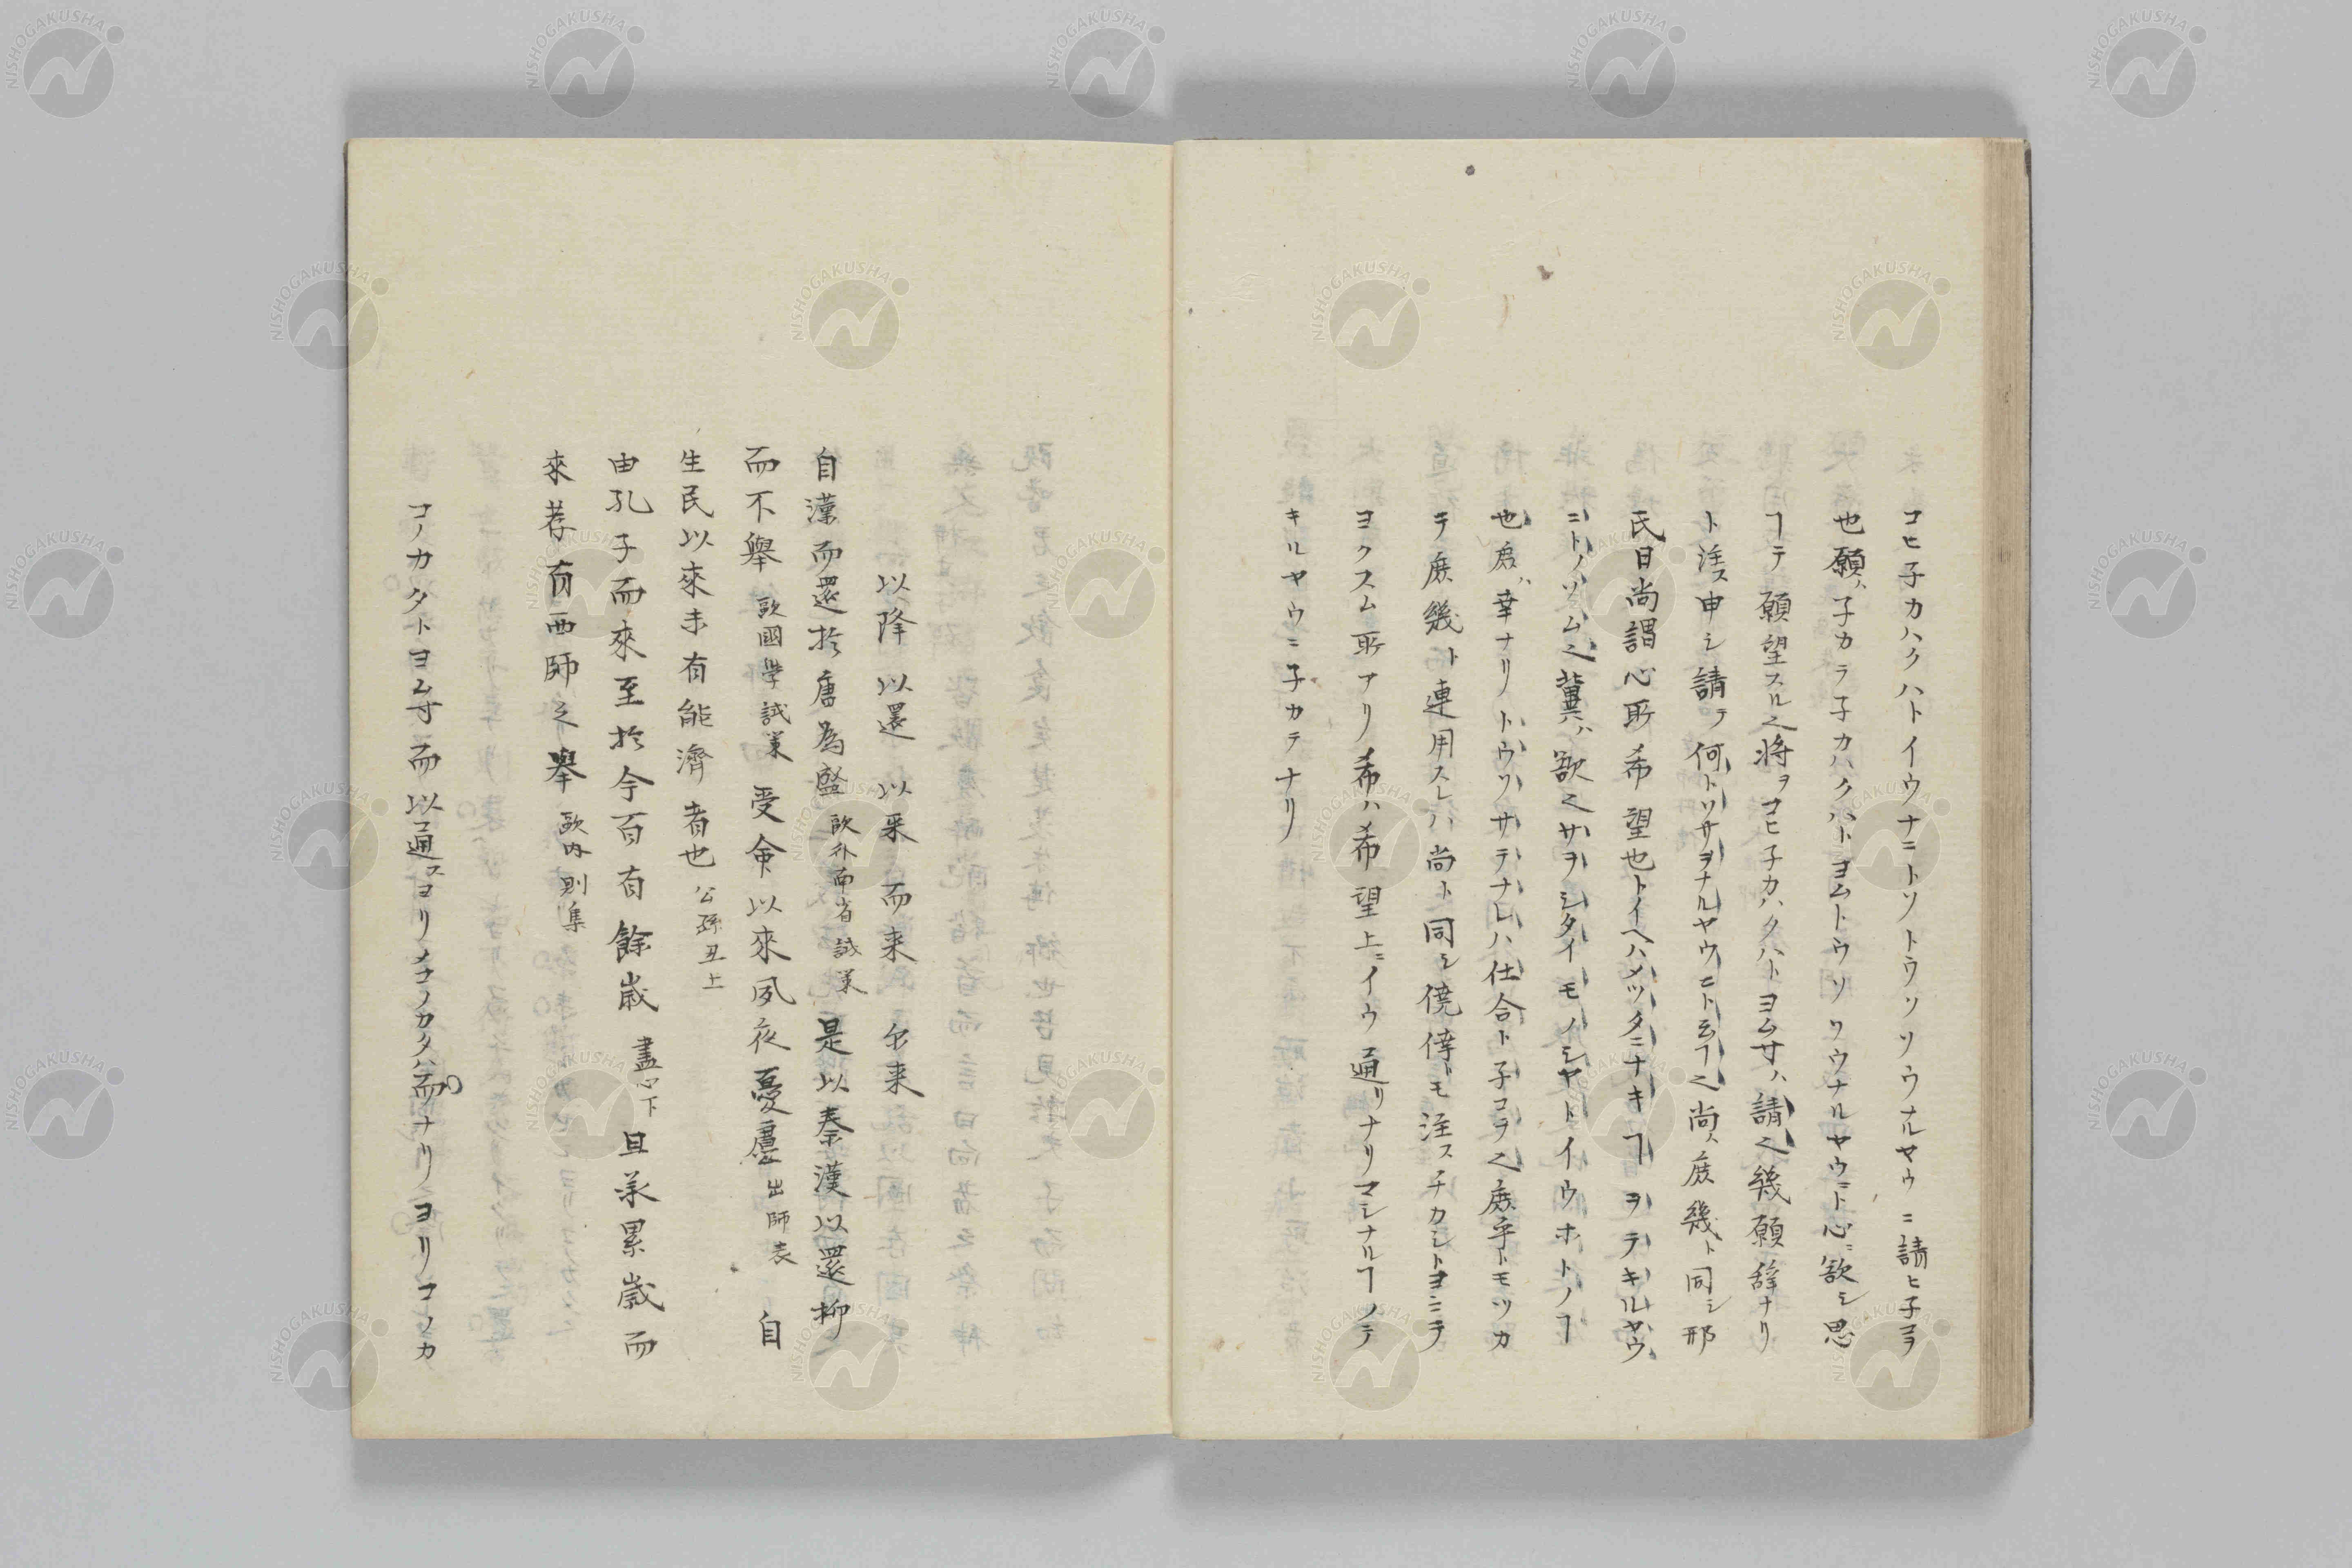 コヒ子カハクハトイウナニトソトウソソウナルヤウニ請ヒ子ヲ
也願ハ子カラ子カハクハトヨムトウソソウナルヤウニト心ニ欲シ思
フテ願望スル之将ヲコヒ子カハクハトヨムサハ請之幾願辞ナリ
ト注ス申シ請テ何トソサヲナルヤウニト云フ之尚ハ庶幾ト同シ邢
氏曰尚謂心所希望也トイヘハメツタニナキヿヲテキルヤウ
ニトノソム之冀ハ欲之サヲシタイモノシヤトイウホトノヿ
也為ハ幸ナリトウソサテナレハ仕合ト子コラ之庶乎トモツカ
ヲ庶幾ト連用スレハ尚ト同シ僥倖トモ注スチカシトヨミテ
ヨクスム所アリ希ハ希望上ニイウ通リナリマシナルヿノテ
キルヤウニ子カテナリ
以降 以還 以来 而来 尓来
自漢而還於唐為盛 欧外南省試策 是以秦漢以還抑
而不舉 欧國學試策 受命以來夙夜憂慮 出師表 自
生民以來未有能濟者也 公孫丑上
由孔子而來至於今百有餘歳 盡心下 且承累歳而
來荐有西師之舉 欧内則集
コノカタトヨム寸而以通スヨリノコノカタハ而ナリヨリコノカ